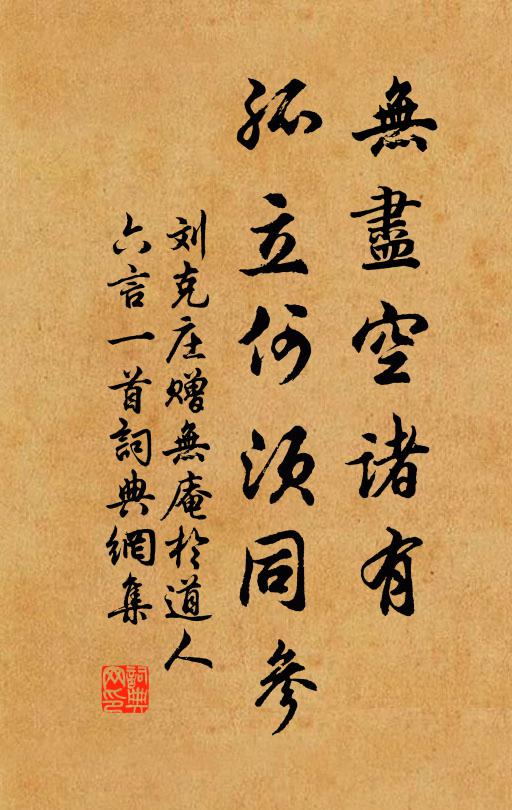 無盡空諸有
孤立何須同參
刘克庄赠無庵於道人
六言一首詞典網集
詞典网印